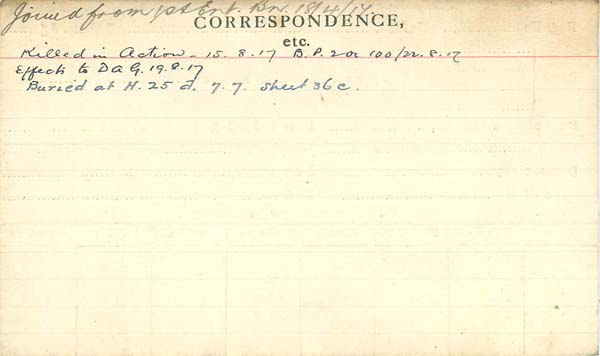 Joined from 1st Ent. Bn. 18/4/17
CORRESPONDENCE,
etc.
Killed in Action - 15. 8. 17 B. P. 2 or 100/22. 8. 17
Effects to D A G. 19. 8. 17
Buried at H. 25 d. 7. 7. sheet 36 c.